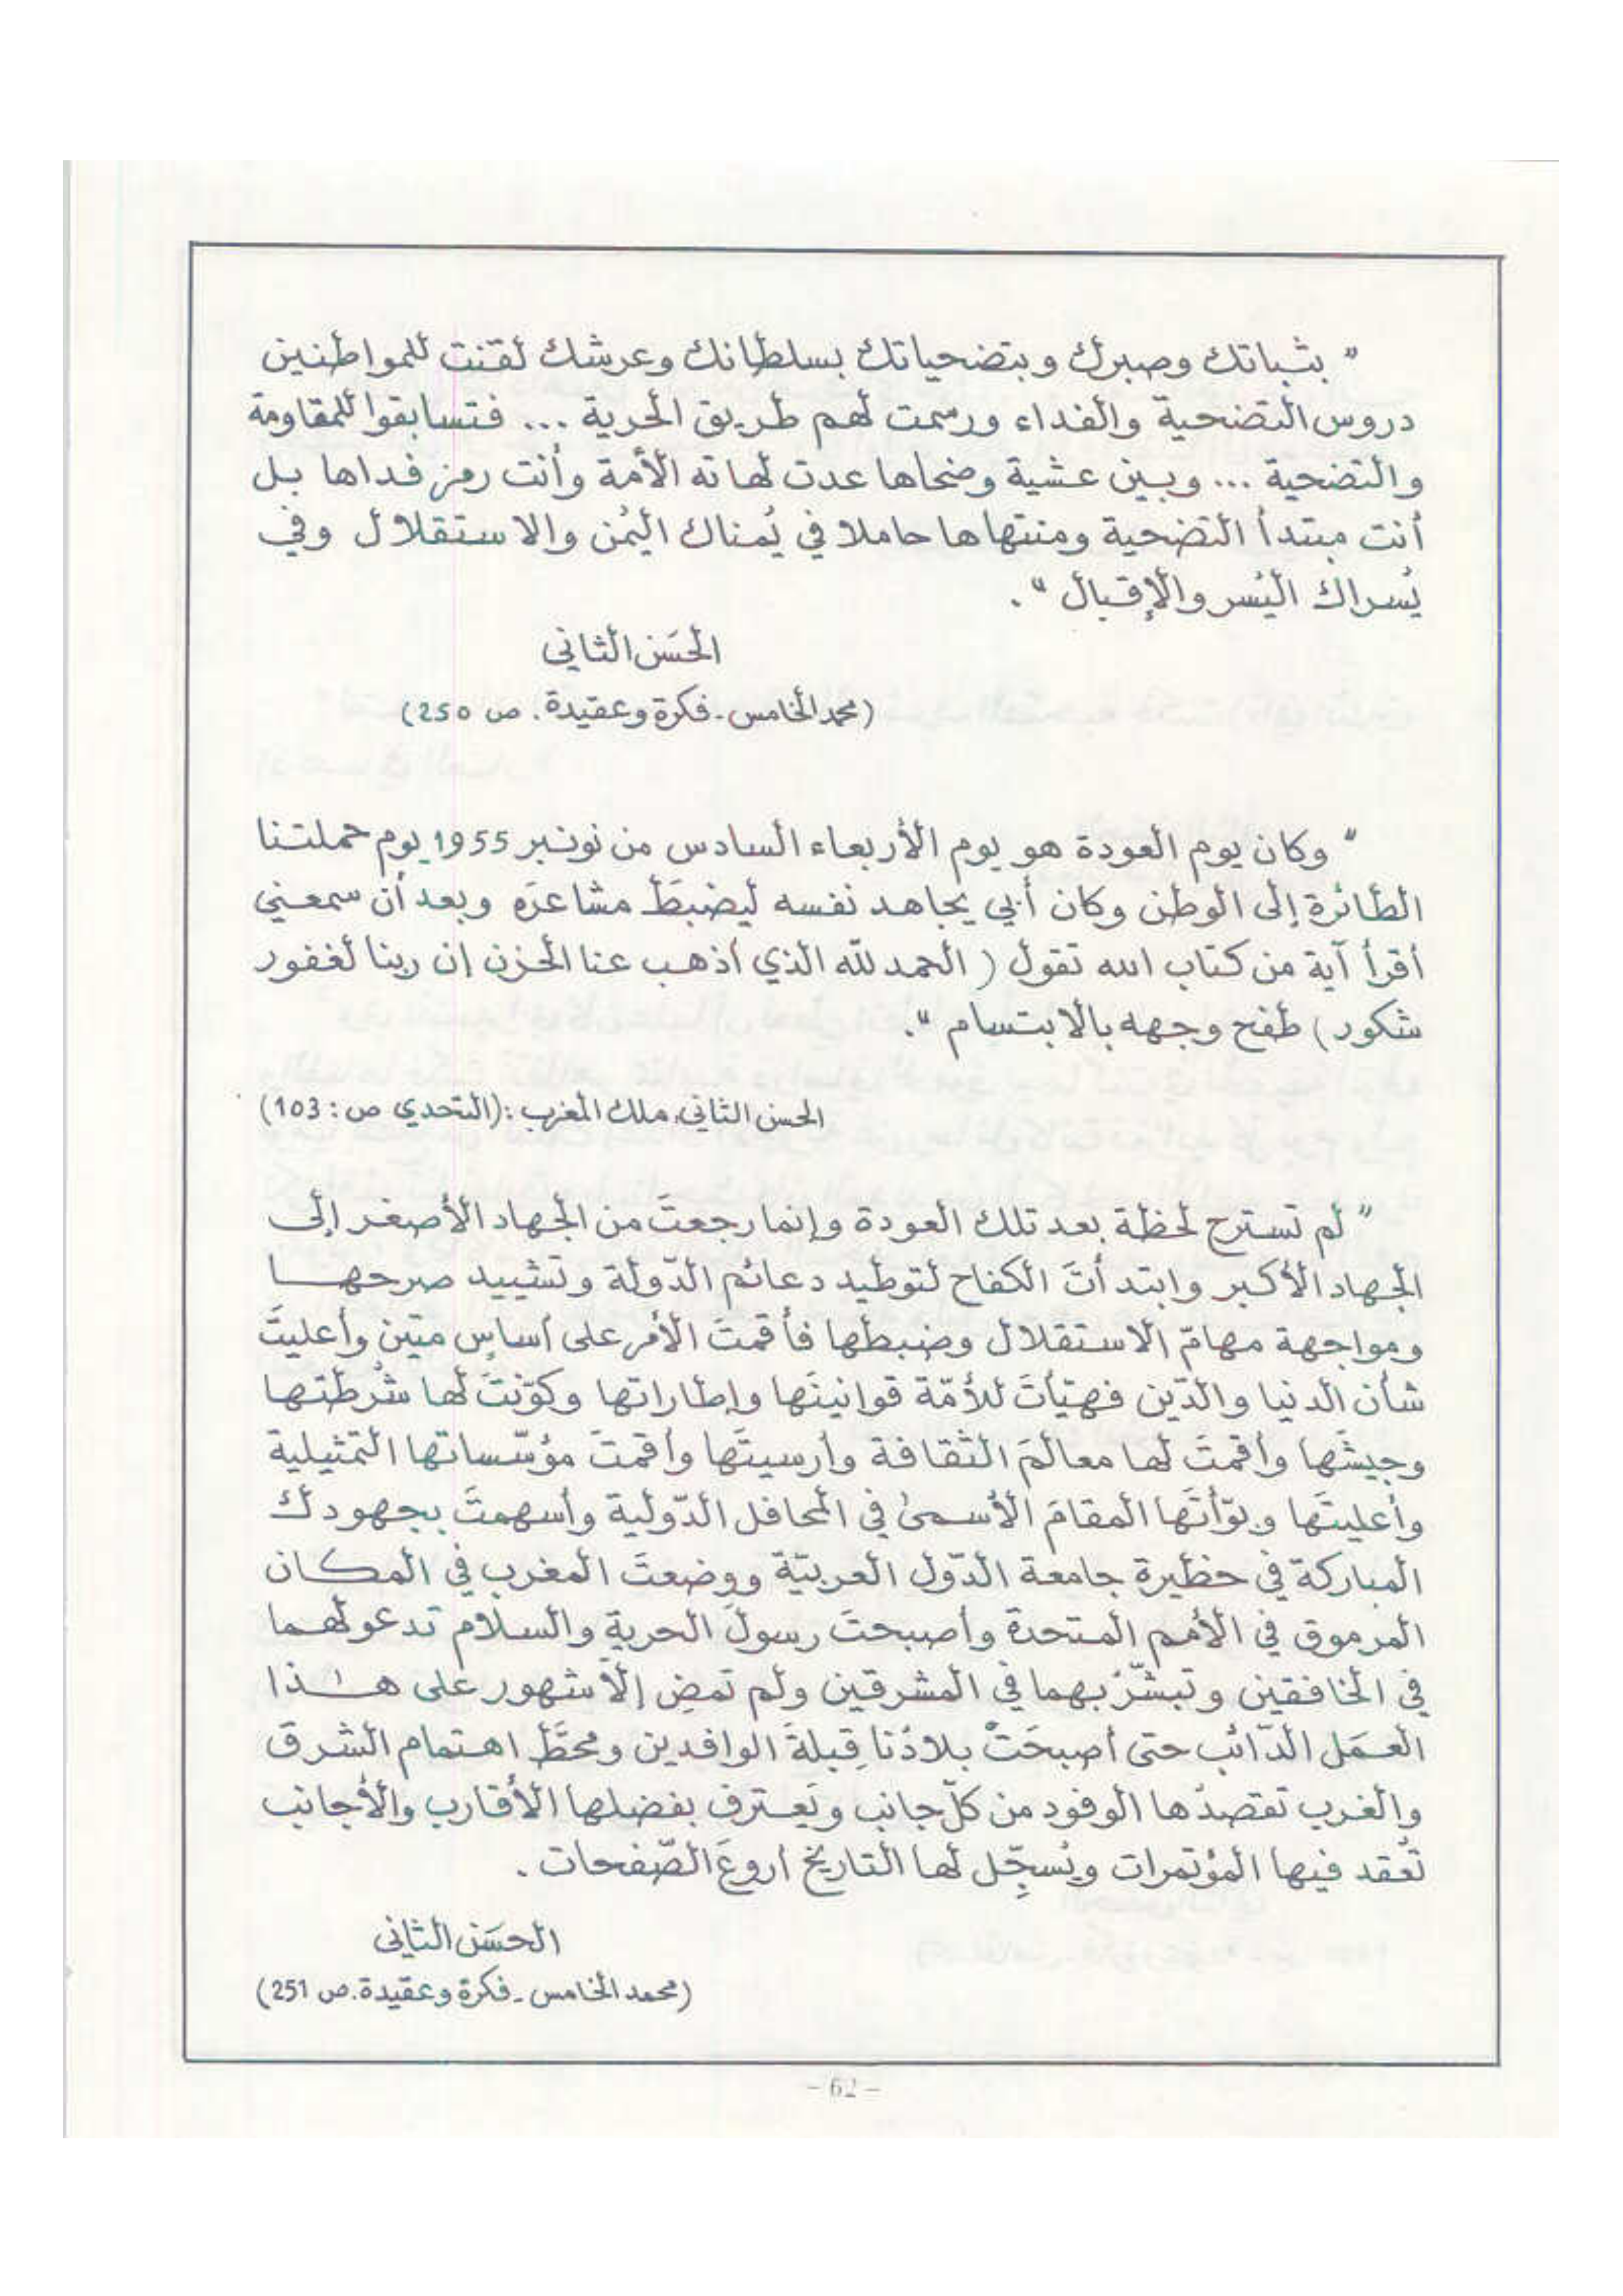 " بثباتك وصبرك وبتضحياتك بسلطانك وعرشك لقنت للمواطنين
دروس التضحية والفداء ورسمت لهم طريق الحرية ... فتسابقوا للمقاومة
والتضحية ... وبين عشية وضحاها عدت لهاته الأمة وأنت رمز فداها بل
أنت مبتدأ التضحية ومنتهاها حاملا في يُمناك اليُمن والاستقلال وفي
يُسراك اليُسر والإقبال ".
الحَسَن الثاني
(محمد الخامس - فكرة وعقيدة. ص 250)
" وكان يوم العودة هو يوم الأربعاء السادس من نونبر 1955 يوم حملتنا
الطائرة إلى الوطن وكان أبي يجاهد نفسه ليضبطَ مشاعرَه وبعد أن سمعني
أقرأ آية من كتاب الله تقول ( الحمد لله الذي أذهب عنا الحزن إن ربنا لغفور
شكور ) طفح وجهه بالابتسام ".
الحسن الثاني، ملك المغرب : (التحدي ص : 103)
" لم تسترح لحظة بعد تلك العودة وإنما رجعتَ من الجهاد الأصغر إلى
الجهاد الأكبر وابتدأتَ الكفاح لتوطيد دعائم الدّولة وتشييد صرحها
ومواجهة مهامّ الاستقلال وضبطها فأقمتَ الأمر على أساسٍ متين وأعليتَ
شأن الدنيا والدّين فهيّأتَ للأمّة قوانينَها وإطاراتها وكوّنتَ لها شُرطتها
وجيشَها وأقمتَ لها معالمَ الثقافة وأرسيتَها وأقمتَ مؤسّساتها التمثيلية
وأعليتَها وبوّأتَها المقامَ الأسمىٰ في المحافل الدّولية وأسهمتَ بجهودك
المباركة في حظيرة جامعة الدّول العربيّة ووضعتَ المغرب في المكان
المرموق في الأمم المتحدة وأصبحتَ رسولَ الحرية والسلام تدعو لهما
في الخافقين وتبشّرُ بهما في المشرقين ولم تمضِ إلاّ شهور على هٰذا
العمَل الدّائب حتى أصبحَتْ بلادُنا قِبلةَ الوافدين ومحَطَّ اهتمام الشرق
والغرب تقصدُها الوفود من كلّ جانب ويَعترف بفضلها الأقارب والأجانب
تُعقد فيها المؤتمرات ويُسجِّل لها التاريخ أروعَ الصّفحات .
الحسَن الثاني
(محمد الخامس - فكرة وعقيدة. ص 251)
- 62 -